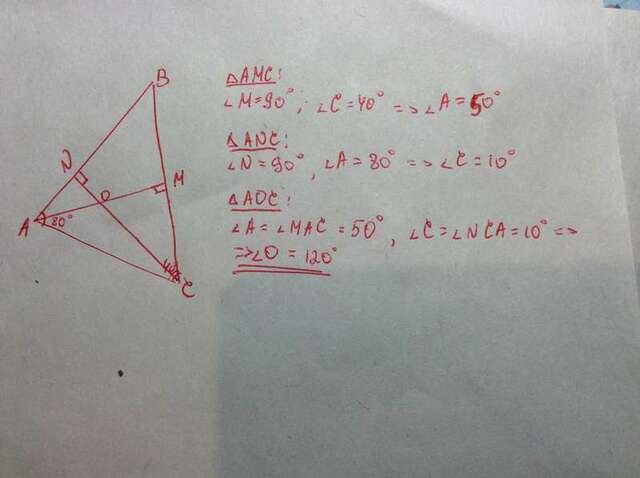 B
N
O
M
A
80°
40°
C
ΔAMC:
∠M=90°; ∠C=40° => ∠A=50°
ΔANC:
∠N=90°, ∠A=80° => ∠C=10°
ΔAOC:
∠A=∠MAC=50°, ∠C=∠NCA=10° =>
=>∠O=120°